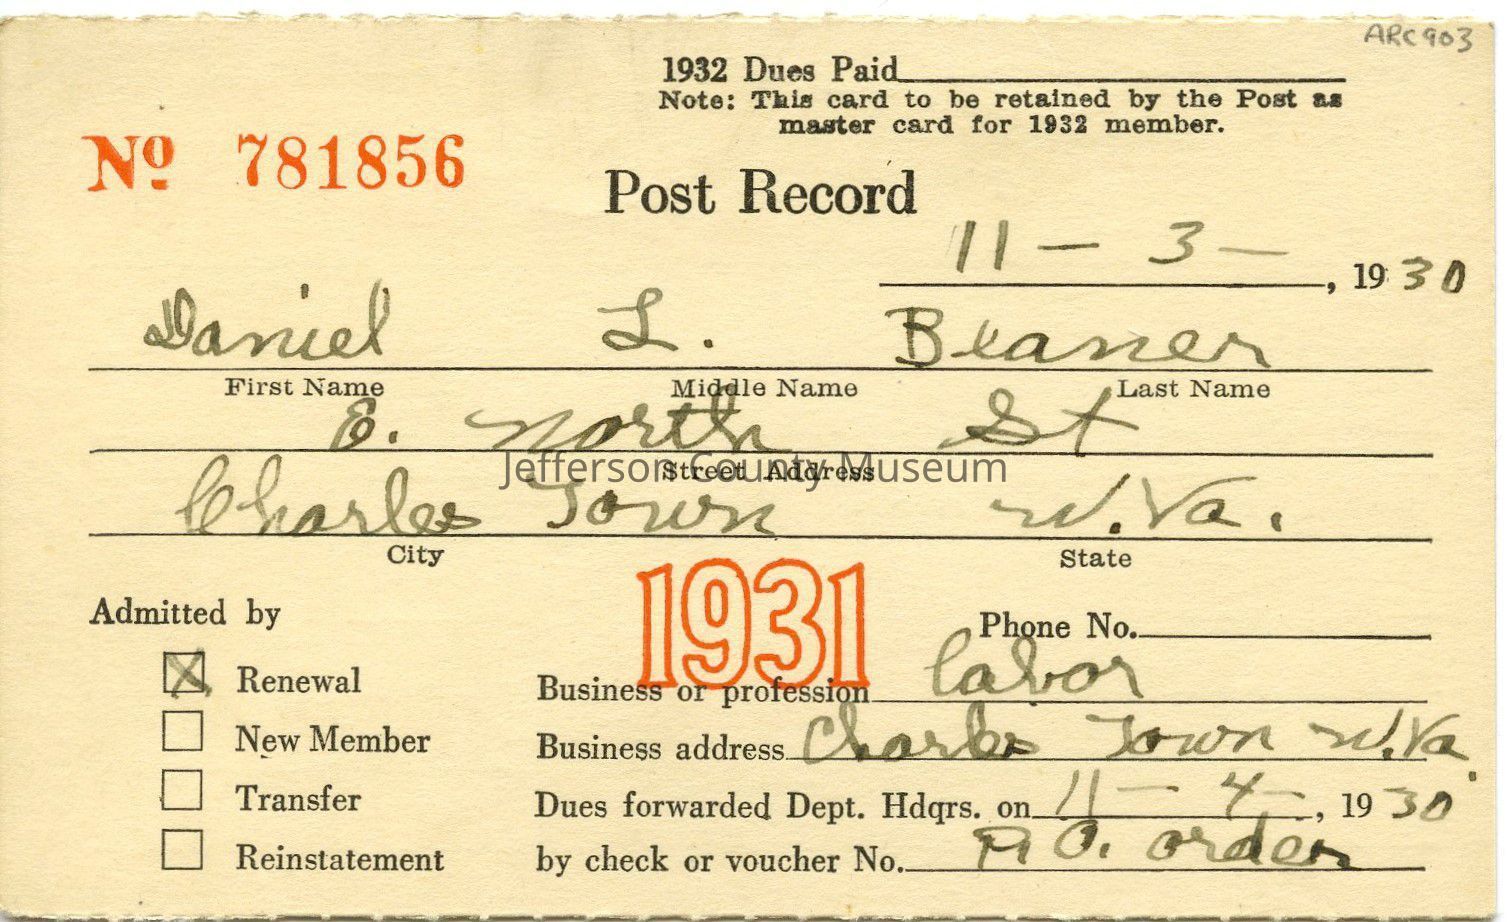 ARC903
1932 Dues Paid
Note: This card to be retained by the Post as
master card for 1932 member.
No 781856
Post Record
11 - 3 - , 1930
Daniel L. Beaner
First Name Middle Name Last Name
E. North St
Street Address
Jefferson County Museum
Charles Town W.Va.
City State
1931
Admitted by
Phone No.
X Renewal
Business or profession Labor
New Member
Business address Charles Town W.Va.
Transfer
Dues forwarded Dept. Hdqrs. on 11 - 4 - , 1930
Reinstatement
by check or voucher No. P.O. order